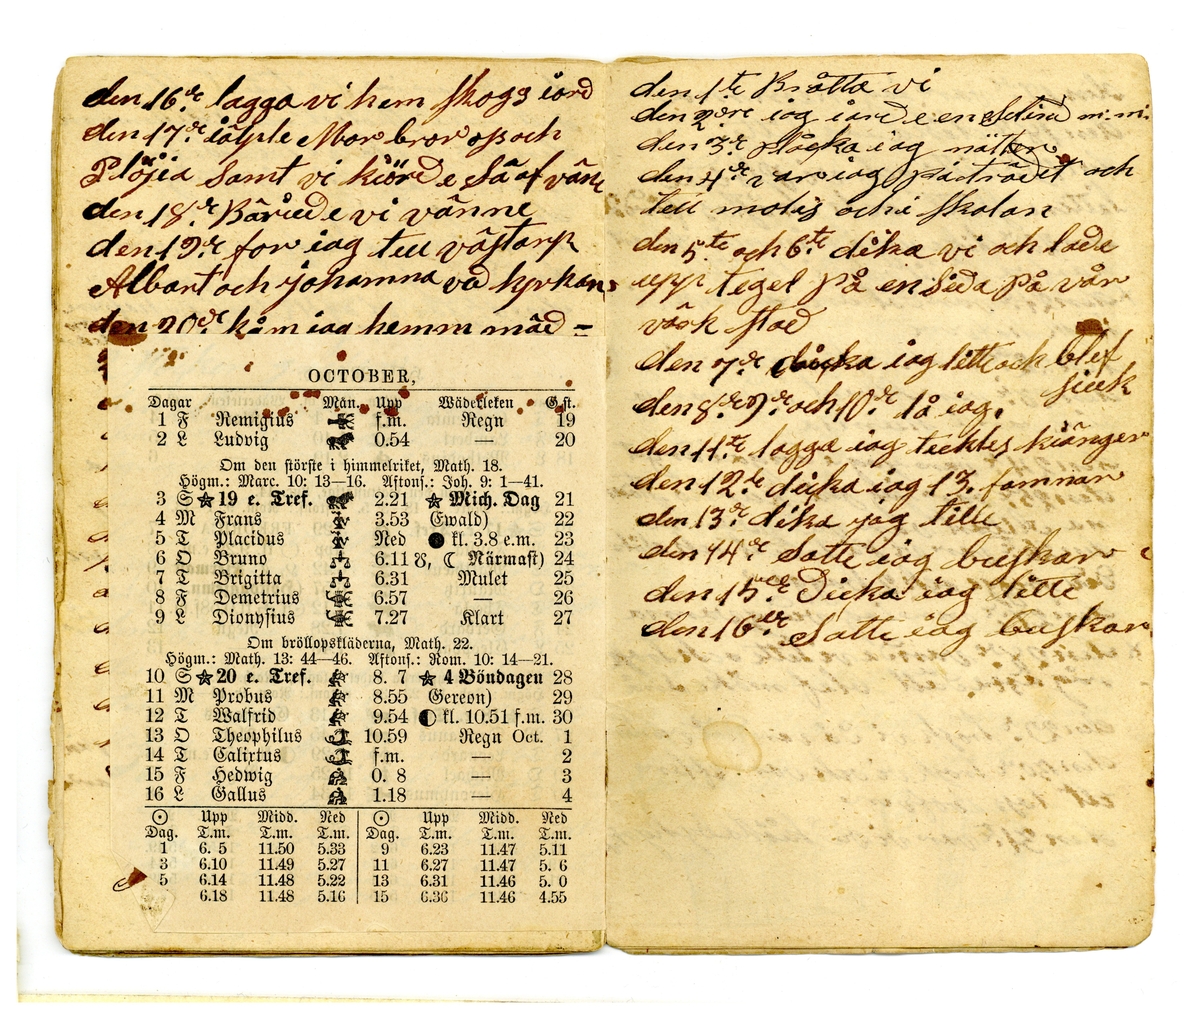 den 16de lagga vi hem skogs iord
den 17de iälple Mor bror op och
Plöjia samt vi kiörde Sä af vän
den 18de Bäriede vi vänne
den 19de for iag till västarp
Albart och johanna väd kyrkan
den 20de kåm iag hemm mäd =
OCTOBER,
Dagar Mån. Upp Wäderleken G.st.
1 F Remigius f.m. Regn 19
2 L Ludvig 0.54 — 20
Om den störste i himmelriket, Math. 18.
Högm.: Marc. 10: 13—16. Aftons.: Joh. 9: 1—41.
3 S 19 e. Tref. 2.21 Mich. Dag 21
4 M Frans 3.53 Ewald) 22
5 T Placidus Ned kl. 3.8 e.m. 23
6 O Bruno 6.11 ☋, ☾ Närmast) 24
7 T Brigitta 6.31 Mulet 25
8 F Demetrius 6.57 — 26
9 L Dionysius 7.27 Klart 27
Om bröllopskläderna, Math. 22.
Högm.: Math. 13: 44—46. Aftons.: Rom. 10: 14—21.
10 S 20 e. Tref. 8. 7 4 Böndagen 28
11 M Probus 8.55 Gereon) 29
12 T Walfrid 9.54 kl. 10.51 f.m. 30
13 O Theophilus 10.59 Regn Oct. 1
14 T Calixtus f.m. — 2
15 F Hedwig 0. 8 — 3
16 L Gallus 1.18 — 4
☉ Upp Midd. Ned ☉ Upp Midd. Ned
Dag. T.m. T.m. T.m. Dag. T.m. T.m. T.m.
1 6. 5 11.50 5.33 9 6.23 11.47 5.11
3 6.10 11.49 5.27 11 6.27 11.47 5. 6
5 6.14 11.48 5.22 13 6.31 11.46 5. 0
6.18 11.48 5.16 15 6.36 11.46 4.55
den 1te Bråtta vi
den 2dre iag iorde en m.m.
den 3de plåcka iag nätter
den 4de var iag på trädet och
till molis och i skolan
den 5te och 6te dika vi och lade
upp tegel på en Sida på vår
värk stad
den 7de dicka iag litte och blef
siuk
den 8de 9de och 10de lå iag.
den 11te lagga iag kiänger
den 12te dicka iag 13. famnar
den 13de dika jag litte
den 14de Satte iag buskar
den 15de Dicka iag litte
den 16de Satte iag buskar